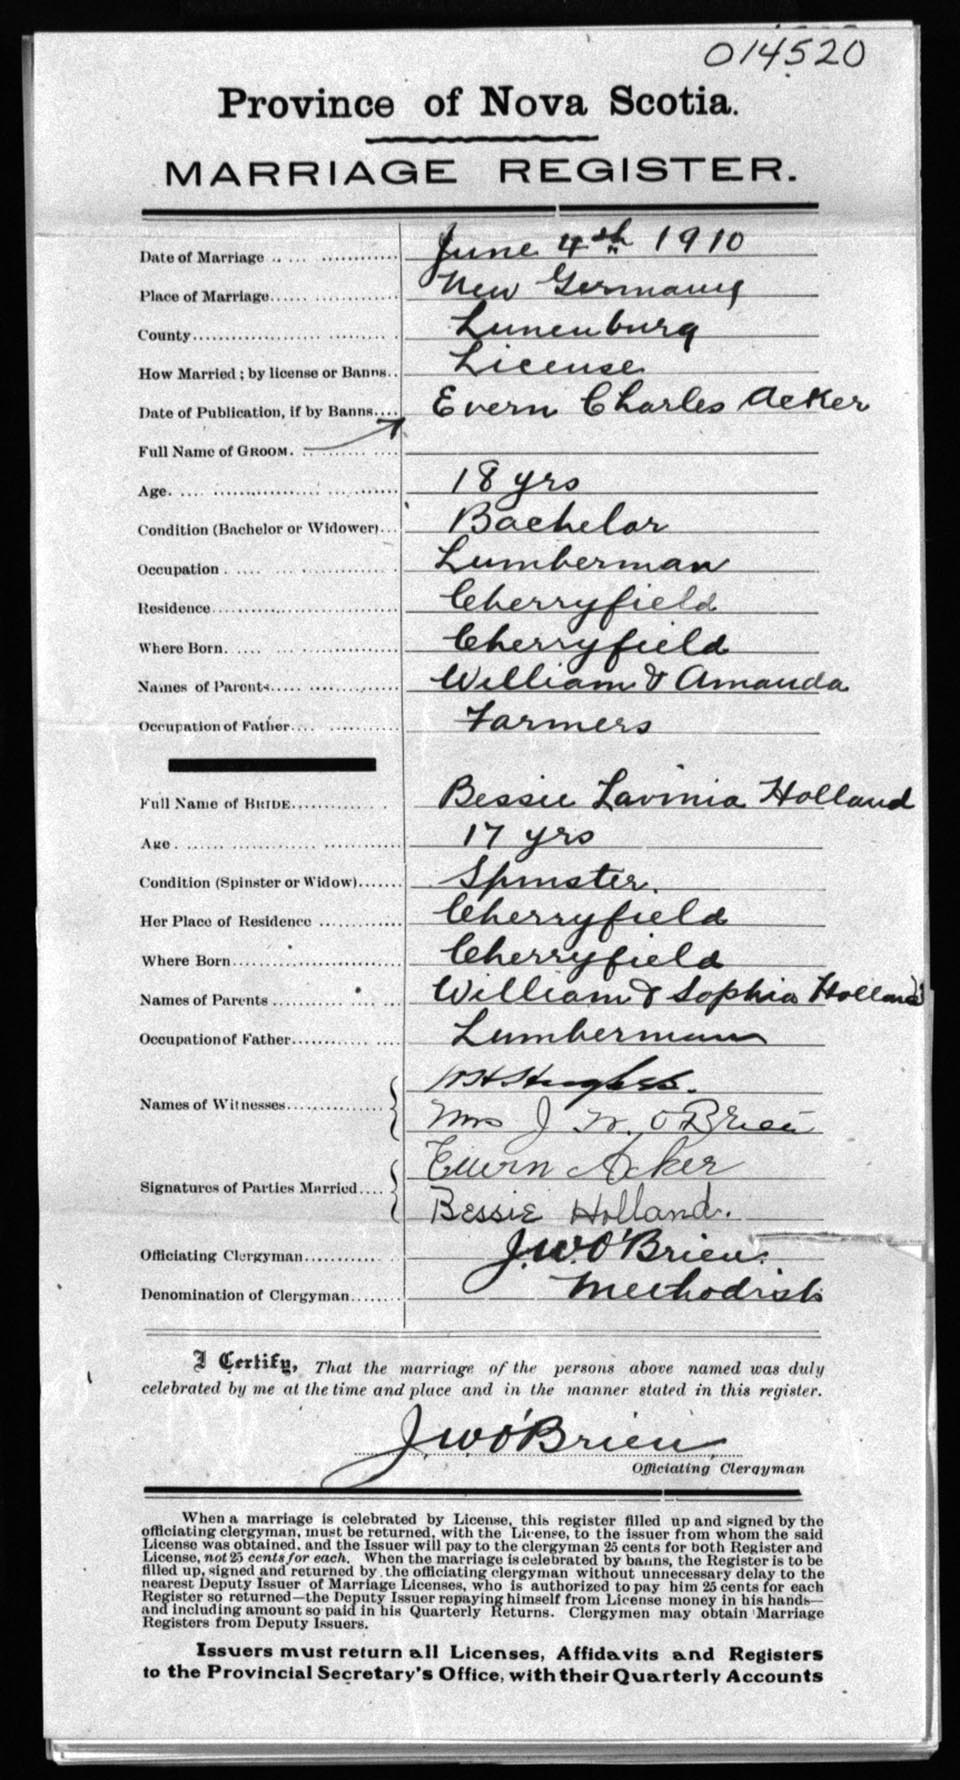 014520
Province of Nova Scotia.
MARRIAGE REGISTER.
Date of Marriage June 4th 1910
Place of Marriage New Germany
County Lunenburg
How Married; by license or Banns License
Date of Publication, if by Banns Evern Charles Acker
Full Name of GROOM.
Age. 18 yrs
Condition (Bachelor or Widower) Bachelor
Occupation Lumberman
Residence Cherryfield
Where Born. Cherryfield
Names of Parents William & Amanda
Occupation of Father Farmers
Full Name of BRIDE Bessie Lavinia Holland
Age 17 yrs
Condition (Spinster or Widow) Spinster.
Her Place of Residence Cherryfield
Where Born Cherryfield
Names of Parents William & Sophia Holland
Occupation of Father Lumberman
Names of Witnesses Hughes.
Mrs J. W. O'Brien
Signatures of Parties Married Evern Acker
Bessie Holland.
Officiating Clergyman J.W.O'Brien.
Denomination of Clergyman Methodist
I Certify, That the marriage of the persons above named was duly
celebrated by me at the time and place and in the manner stated in this register.
J.W.O'Brien
Officiating Clergyman
When a marriage is celebrated by License, this register filled up and signed by the
officiating clergyman, must be returned, with the License, to the issuer from whom the said
License was obtained, and the Issuer will pay to the clergyman 25 cents for both Register and
License, not 25 cents for each. When the marriage is celebrated by banns, the Register is to be
filled up, signed and returned by the officiating clergyman without unnecessary delay to the
nearest Deputy Issuer of Marriage Licenses, who is authorized to pay him 25 cents for each
Register so returned—the Deputy Issuer repaying himself from License money in his hands—
and including amount so paid in his Quarterly Returns. Clergymen may obtain Marriage
Registers from Deputy Issuers.
Issuers must return all Licenses, Affidavits and Registers
to the Provincial Secretary's Office, with their Quarterly Accounts